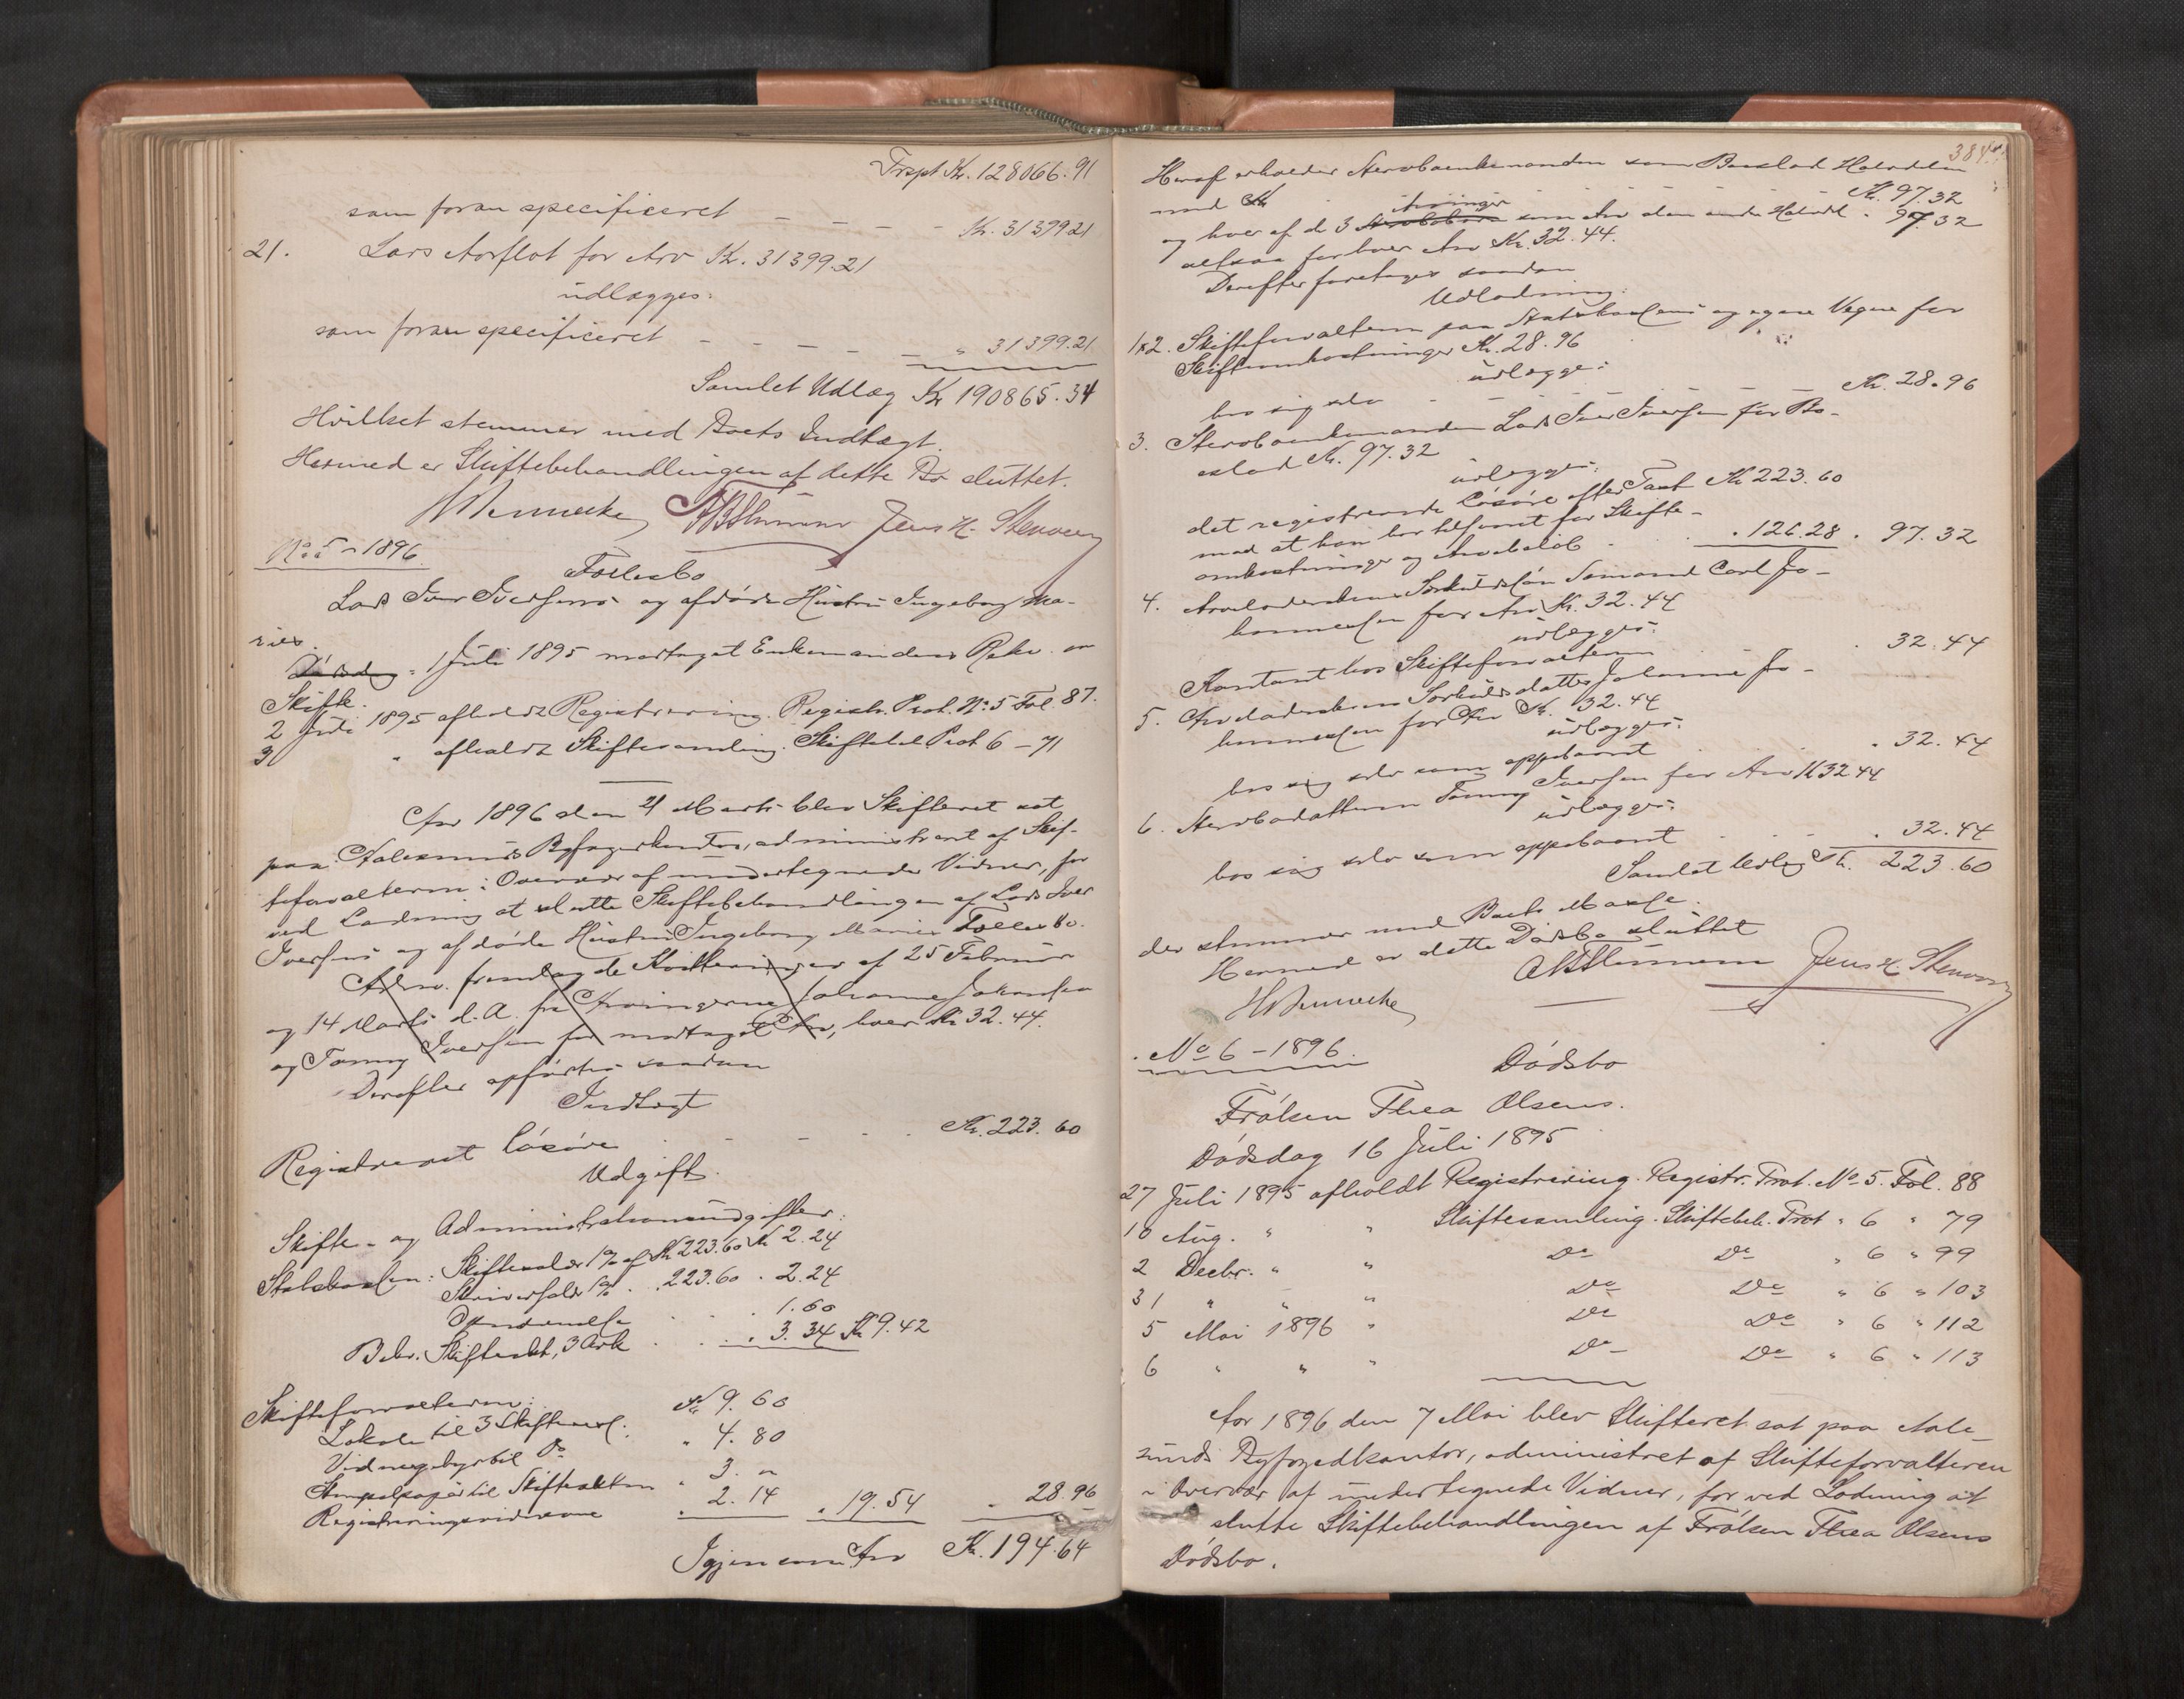 Trspt Kr. 128066.91
som foran specificeret - - - - Kr. 31399.21
21. Lars Aarflot for Arv Kr. 31399.21
udlægges:
som foran specificeret - - - - - " 31399.21
Samlet Udlæg Kr 190865.34
Hvilket stemmer med Boets Indtægt.
Hermed er Skiftebehandlingen af dette Bo sluttet.
Jens H. Stenvæg
No 5 - 1896.
Fællesbo
Lars Iver Iversens og afdøde Hustru Ingeborg Ma-
ries.
Dødsdag = 1 Juli 1895 modtaget Enkemandens Rekv. om
Skifte.
2 Juli 1895 afholdt Registrering. Registr. Prot. No 5 Fol. 87.
3 " afholdt Skiftesamling. Skiftebeh Prot 6 - 71
Aar 1896 den 21 Marts blev Skifteret sat
paa Aalesunds Byfogedkontor, administreret af Skif-
teforvalteren i Overvær af undertegnede Vidner, for
ved Lodning at slutte Skiftebehandlingen af Lars Iver
Iversens og afdøde Hustru Ingeborg Maries Fællesbo.
Adm. fremlagde Kvitteringer af 25 Februar
og 14 Marts d. A. fra Arvingerne Johanne Johansen
og Tomny Iversen for modtaget Arv, hver Kr 32.44.
Derefter opførtes saadan
Indtægt
Registreret Løsøre - - - Kr. 223.60
Udgift.
Skifte- og Administrationsudgifter:
Statskassen: Skiftesalær 1% af Kr 223.60 Kr 2.24
Skriversalær 1% " 223.60 " 2.24
1.60
Bekr. Skifteakt, 3 Ark . . . 3.34 Kr 9.42
Skifteforvalteren:
Lokale til 3 Skiftesaml. Kr 9.60
Vidnegebyr til Do " 4.80
Stempelpapir til Skifteakten " 3. "
Registreringsvidnerne . 2.14 . 19.54 . 28.96
Igjen som Arv Kr. 194.64
384
Heraf erholder Stervboenkemanden som Boeslod Halvdelen
med Kr Kr. 97.32
Arvinger
og hver af de 3 Stervbobørn som Arv den anden Halvdel " 97.32
altsaa for hver Arv Kr. 32.44.
Derefter foretoges saadan
Udlodning:
1&2. Skifteforvalteren paa Statskassens og egne Vegne for
Skifteomkostninger Kr. 28.96
udlægges:
hos sig selv - - - - Kr. 28.96
3. Stervboenkemanden Lars Iver Iversen for Bo-
eslod Kr. 97.32
udlægges:
det registrerede Løsøre efter Taxt Kr 223.60
mod at han har tilsvaret for Skifte-
omkostninger og Arvebeløb . . 126.28 . 97.32
4. Arveladerskens Særkuldssøn Sømand Carl Jo-
hannessen for Arv Kr. 32.44
udlægges:
Kontant hos Skifteforvalteren . 32.44
5. Arveladerskens Særkuldsdatter Johanne Jo-
hannessen for Arv Kr. 32.44
udlægges:
hos sig selv som oppebaaret . 32.44
6. Stervbodatteren Tomny Iversen for Arv Kr 32.44
udlægges:
hos sig selv som oppebaaret . . . 32.44
Samlet Udlæg Kr. 223.60
der stemmer med Boets Masse.
Hermed er dette Dødsbo sluttet
Jens H. Stenvæg
No 6 - 1896.
Dødsbo
Frøken Thea Olsens.
Dødsdag 16 Juli 1895
27 Juli 1895 afholdt Registrering. Registr. Prot. No 5. Fol. 88
10 Aug. " " Skiftesamling. Skiftebeh. Prot " 6 " 79
2 Decbr. " " Do Do " 6 " 99
31 " " " Do Do " 6 " 103
5 Mai 1896 " Do Do " 6 " 112
6 " " " Do Do " 6 " 113
Aar 1896 den 7 Mai blev Skifteret sat paa Aale-
sunds Byfogedkontor, administret af Skifteforvalteren
i Overvær af undertegnede Vidner, for ved Lodning at
slutte Skiftebehandlingen af Frøken Thea Olsens
Dødsbo.